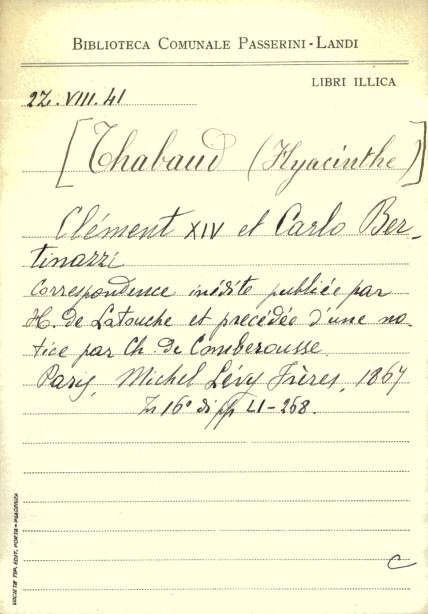 BIBLIOTECA COMUNALE PASSERINI-LANDI
LIBRI ILLICA
2Z.VIII.41
[Thabaud (Hyacinthe)]
Clément XIV et Carlo Ber-
tinazzi
Correspondence inédite publiée par
H. de Latouche et precédée d'une no-
tice par Ch. de Comberousse
Paris, Michel Lévy Frères, 1867
In 16° di pp LI-268.
SOCIETÀ TIP. EDIT. PORTA - PIACENZA
C